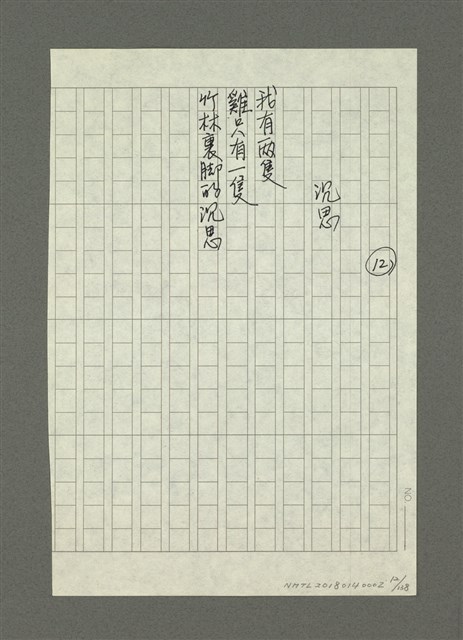 12
沉思
我有兩隻
雞只有一隻
竹林裏脚的沉思
NO
NMTL20180140002 12/128